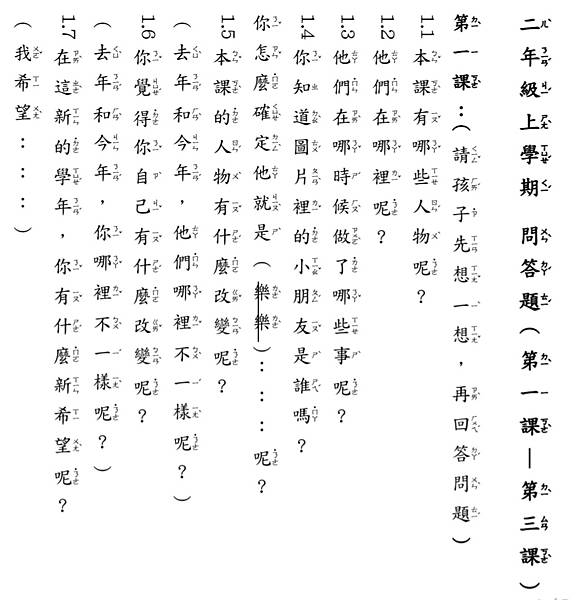 二年級上學期 問答題(第一課—第三課)
第一課:(請孩子先想一想,再回答問題)
1.1 本課有哪些人物呢?
1.2 他們在哪裡呢?
1.3 他們在哪時候做了哪些事呢?
1.4 你知道圖片裡的小朋友是誰嗎?
你怎麼確定他就是(樂樂):::呢?
1.5 本課的人物有什麼改變呢?
(去年和今年,他們哪裡不一樣呢?)
1.6 你覺得你自己有什麼改變呢?
(去年和今年,你哪裡不一樣呢?)
1.7 在這新的學年,你有什麼新希望呢?
(我希望:::)